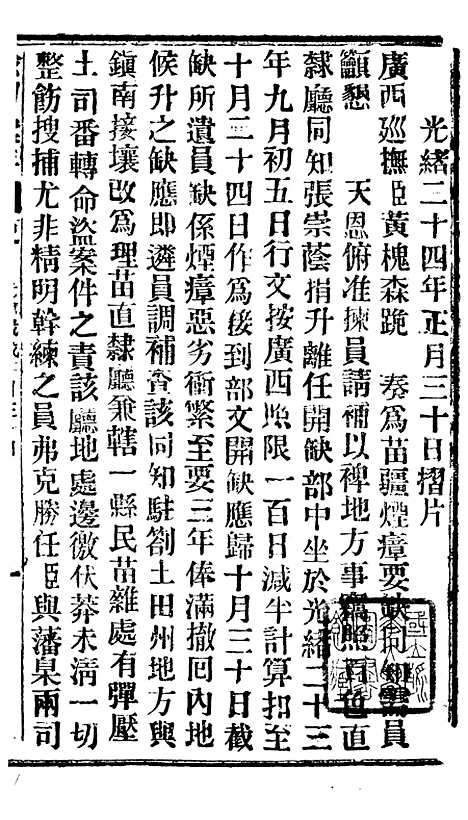 光緒二十四年正月三十日摺片
廣西巡撫臣黃槐森跪 奏為苗疆煙瘴要缺同員
籲懇 天恩俯准揀員請補以裨地方事竊照百色直
隸廳同知張崇蔭指升離任開缺部中坐於光緒二十三
年九月初五日行文按廣西照限一百日減半計算扣至
十月二十四日作為接到部文開缺應歸十月三十日截
缺所遺員缺係煙瘴惡劣衝繁至要三年俸滿撤回內地
候升之缺應即遴員調補查該同知駐劄土田州地方與
鎮南接壤改為理苗直隸廳兼轄一縣民苗雜處有彈壓
土司番轉命盜案件之責該廳地處邊徼伏莽未清一切
整飭搜捕尤非精明幹練之員弗克勝任臣與藩臬兩司